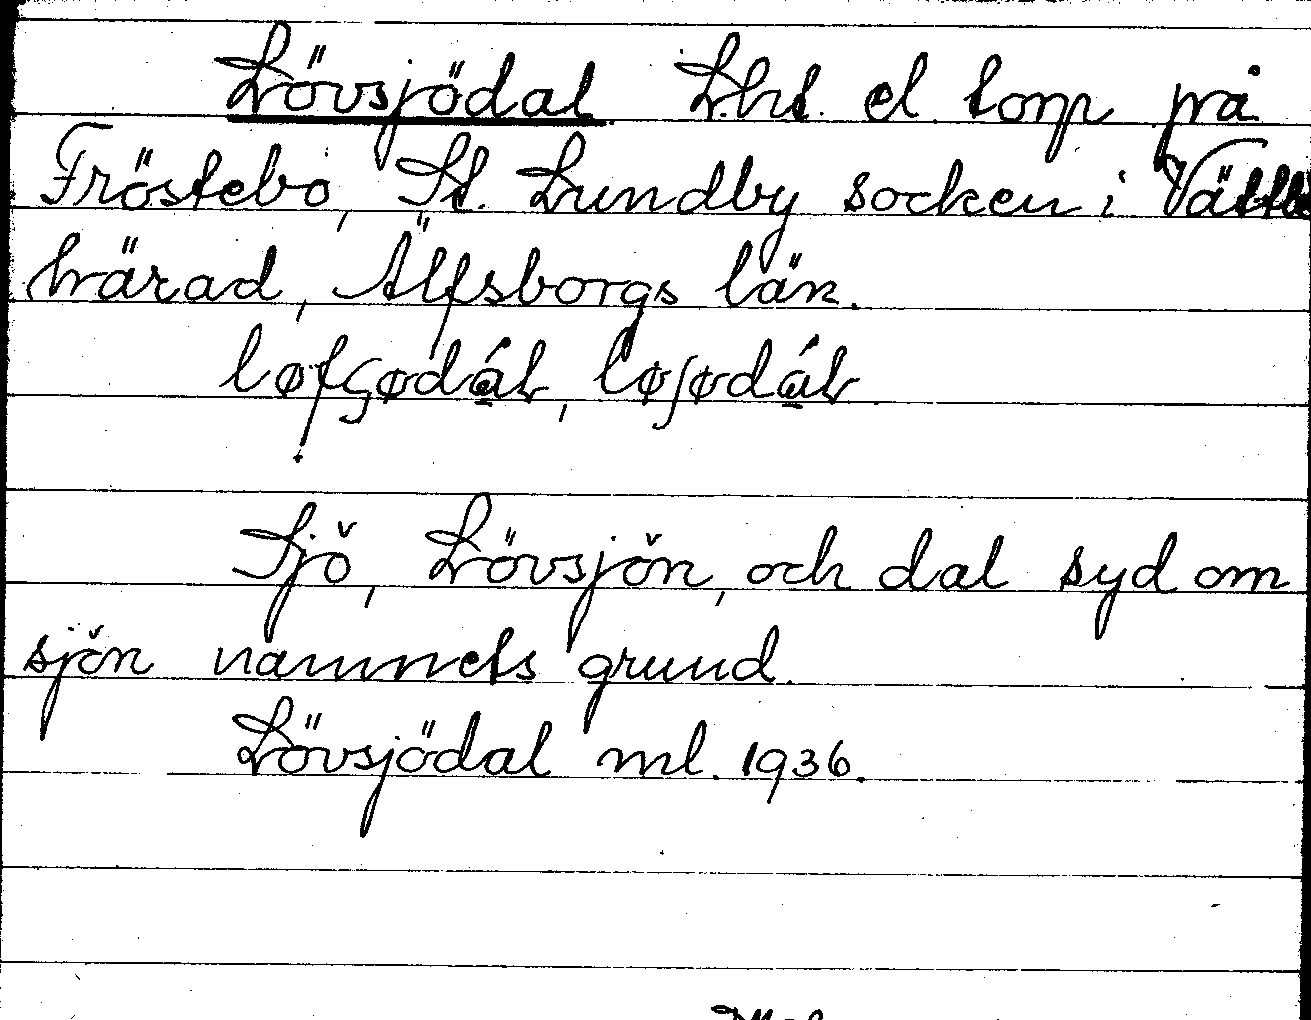 Lövsjödal. L.ht. el torp på
Fröstebo, St. Lundby socken i
härad, Älfsborgs län.
Sjö, Lövsjön, och dal syd om
sjön namnets grund.
Lövsjödal ml. 1936.